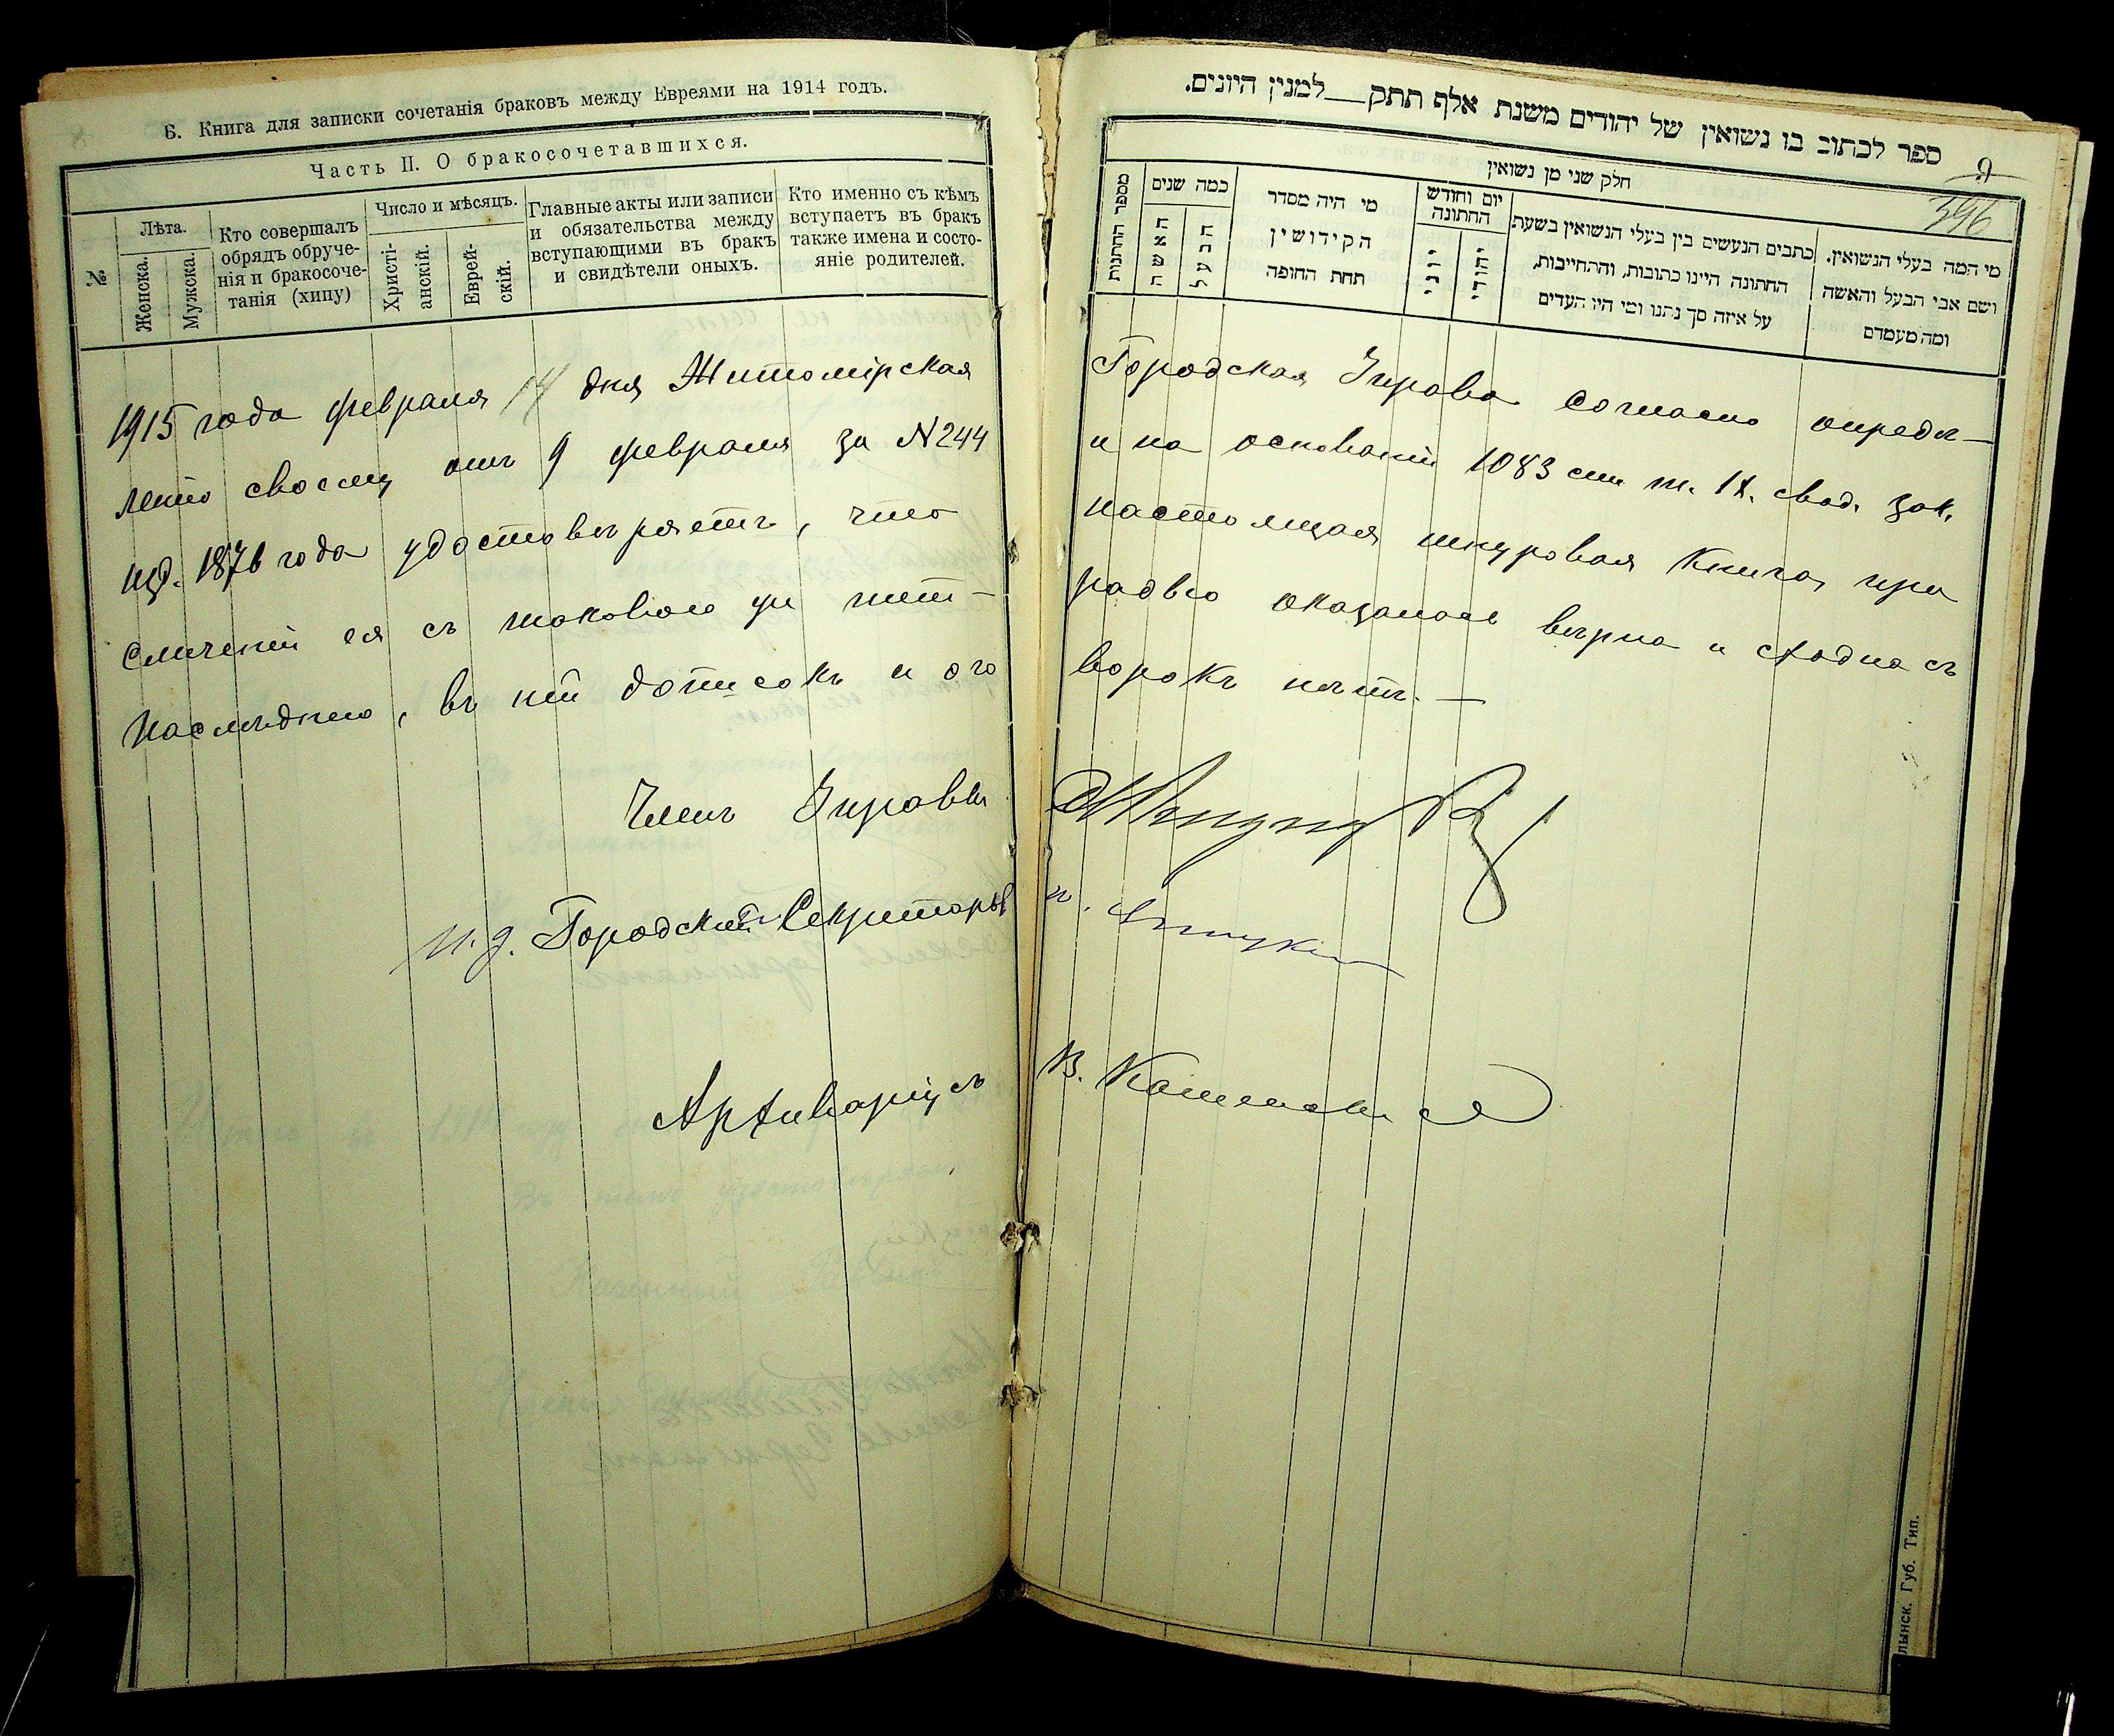 Б. Книга для записки сочетанія браковъ между Евреями на 1914 годъ.
Часть II. О бракосочетавшихся.
№
Лѣта.
Женска.
Мужска.
Кто совершалъ
обрядъ обруче-
нія и бракосоче-
танія (хипу)
Число и мѣсяцъ.
Христі-
анскій.
Еврей-
скій.
Главные акты или записи
и обязательства между
вступающими въ бракъ
и свидѣтели оныхъ.
Кто именно съ кѣмъ
вступаетъ въ бракъ
также имена и состо-
яніе родителей.
ספר לכתוב בו נשואין של יהודים משנת אלף תתק__למנין היונים.
9
396
חלק שני מן נשואין
מספר החתנות
כמה שנים
האשה
הבעל
מי היה מסדר
הקידושין
תחת החופה
יום וחודש
החתונה
יוני
יהודי
כתבים הנעשים בין בעלי הנשואין בשעת
החתונה היינו כתובות, וההתחייבות,
על איזה סך נתנו ומי היו העדים
מי המה בעלי הנשואין.
ושם אבי הבעל והאשה
ומה מעמדם
1915 года февраля 14 дня Житомірская Городская Управа согласно опредѣ-
ленію своему отъ 9 февраля за №244 и на основаніи 1083 ст. т. IX. свод. зак.
изд. 1876 года удостовѣряетъ, что настоящая шнуровая книга, при
сличеніи ея съ таковою же тет- радью оказалась вѣрна и сходна съ
послѣднею, въ ней дописокъ и ого ворокъ нѣтъ. —
Членъ Управы
И. д. Городской Секретарь
Архиваріусъ В.
лынск. Губ. Тип.